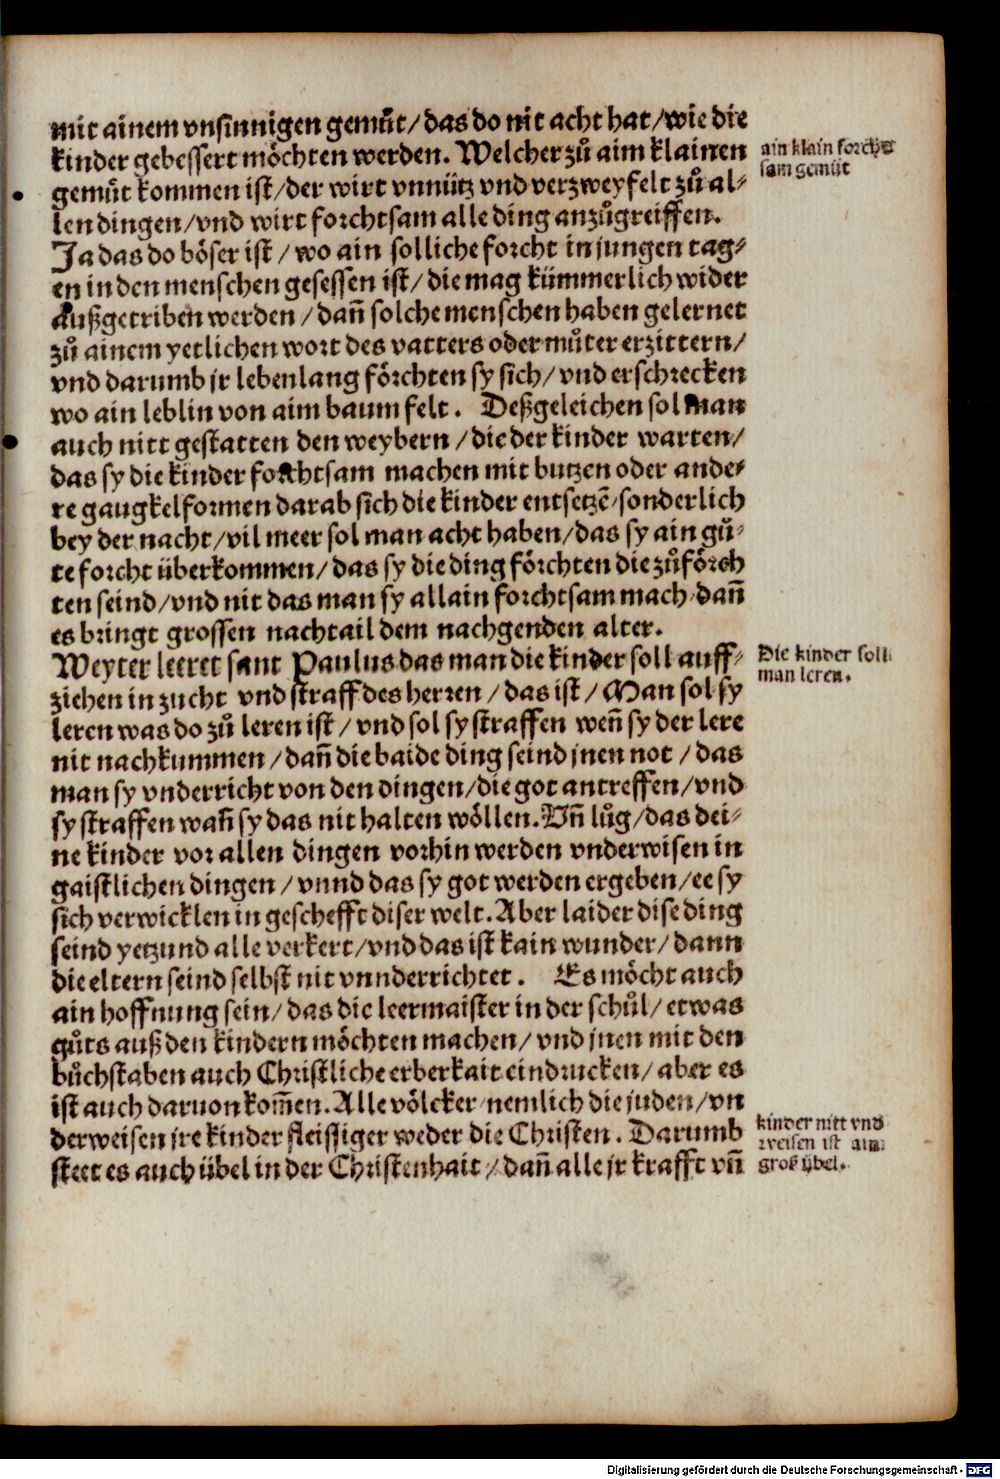 mit ainem vnsinnigen gemuͤt/das do nit acht hat/wie die
kinder gebessert moͤchten werden. Welcher zuͦ aim klainen
ain klain forcht⸗
sam gemuͤt
gemuͤt kommen ist/der wirt vnnütz vnd verzweyfelt zuͦ al⸗
len dingen/vnd wirt forchtsam alle ding anzuͦgreiffen.
Ja das do boͤser ist/wo ain solliche forcht in jungen tag⸗
en in den menschen gesessen ist/die mag kümmerlich wider
außgetriben werden/dann̄ solche menschen haben gelernet
zuͦ ainem yetlichen wort des vatters oder muͦter erzittern/
vnd darumb jr lebenlang foͤrchten sy sich/vnd erschrecken
wo ain leblin von aim baum felt. Deßgeleichen sol man
auch nitt gestatten den weybern/die der kinder warten/
das sy die kinder forchtsam machen mit butzen oder ande⸗
re gaugkelformen darab sich die kinder entsetzē/sonderlich
bey der nacht/vil meer sol man acht haben/das sy ain guͦ⸗
te forcht überkommen/das sy die ding foͤrchten die zuͦfoͤrch
ten seind/vnd nit das man sy allain forchtsam mach/dan̄
es bringt grossen nachtail dem nachgenden alter.
Weyter leeret sant Paulus das man die kinder soll auff⸗
Die kinder soll
man leren.
ziehen in zucht vnd straff des herren/das ist/Man sol sy
leren was do zuͦ leren ist/vnd sol sy straffen wen̄ sy der lere
nit nachkummen/dan̄ die baide ding seind jnen not/das
man sy vnderricht von den dingen/die got antreffen/vnd
sy straffen wan̄ sy das nit halten woͤllen. Vn̄ luͦg/das dei⸗
ne kinder vor allen dingen vorhin werden vnderwisen in
gaistlichen dingen/vnnd das sy got werden ergeben/ee sy
sich verwicklen in geschefft diser welt. Aber laider dise ding
seind yetzund alle verkert/vnd das ist kain wunder/dann
die eltern seind selbst nit vnnderrichtet. Es moͤcht auch
ain hoffnung sein/das die leermaister in der schuͦl/etwas
guͦts auß den kindern moͤchten machen/vnd jnen mit den
buͦchstaben auch Christliche erberkait eindrucken/aber es
ist auch daruon kom̄en. Alle voͤlcker nemlich die juden/vn
kinder nitt vnd
derweisen jre kinder fleissiger weder die Christen. Darumb
weisen ist ain
steet es auch übel in der Christenhait/dan̄ alle jr krafft vn̄
groß übel.
Digitalisierung gefördert durch die Deutsche Forschungsgemeinschaft - DFG